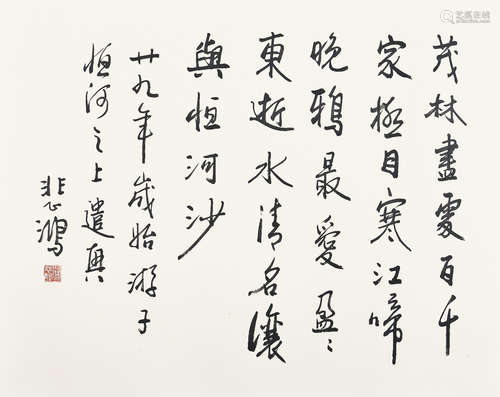 茂林盡處百千
家極目寒江啼
晚鴉最愛盈〻
東逝水清名讓
與恒河沙
廿九年歲始游子
恒河之上遣興
悲鴻